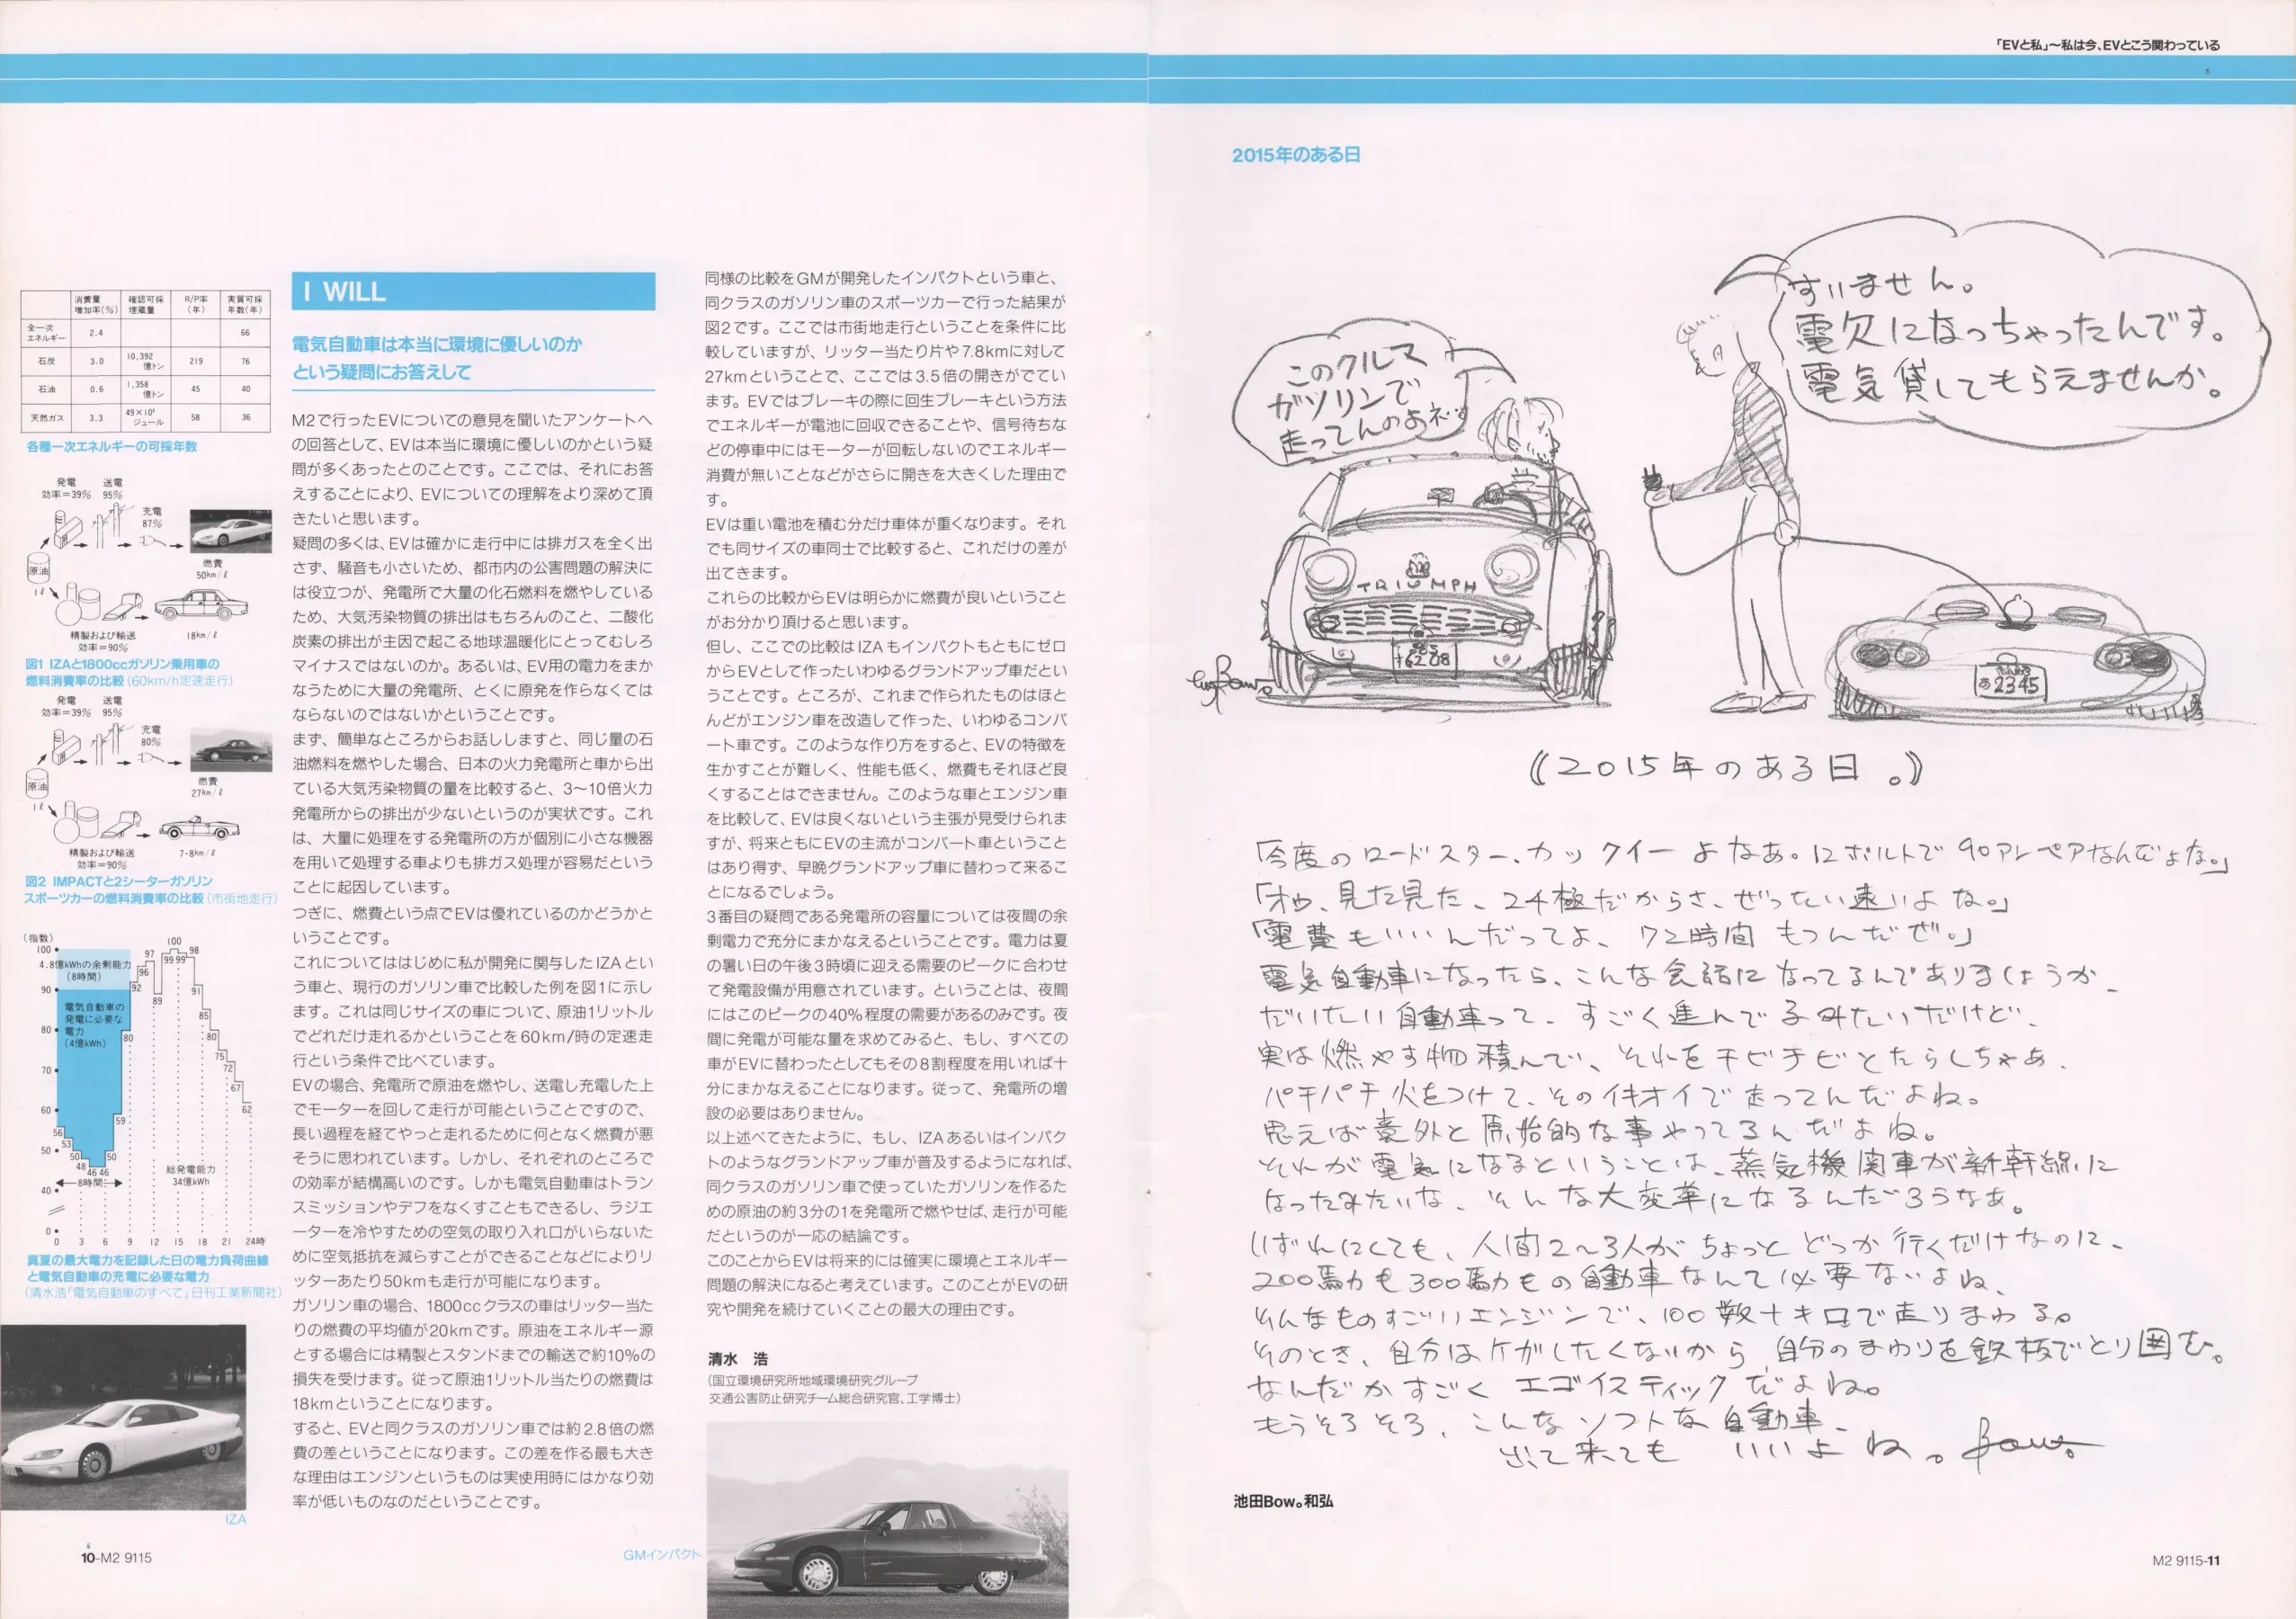 「EVと私」〜私は今、EVとこう関わっている
消費量増加率(%) 確認可採埋蔵量 R/P率(年) 実質可採年数(年)
全一次エネルギー 2.4 66
石炭 3.0 10,392億トン 219 76
石油 0.6 1,358億トン 45 40
天然ガス 3.3 49×10⁶ジュール 58 36
各種一次エネルギーの可採年数
発電 送電
効率=39% 95%
充電
87%
原油
1ℓ
燃費
50km/ℓ
精製および輸送
効率=90%
18km/ℓ
図1 IZAと1800ccガソリン乗用車の
燃料消費率の比較(60km/h定速走行)
発電 送電
効率=39% 95%
充電
80%
原油
1ℓ
燃費
27km/ℓ
精製および輸送
効率=90%
7・8km/ℓ
図2 IMPACTと2シーターガソリン
スポーツカーの燃料消費率の比較(市街地走行)
(指数)
100 90 80 70 60 50 40 0
4.8億kWhの余剰能力
(8時間)
電気自動車の
発電に必要な
電力
(4億kWh)
56 53 50 48 46 46 50 59 80 92 96 97 89 99 100 99 98 91 85 80 75 72 67 62
8時間
総発電能力
34億kWh
0 3 6 9 12 15 18 21 24時
真夏の最大電力を記録した日の電力負荷曲線
と電気自動車の充電に必要な電力
(清水浩「電気自動車のすべて」日刊工業新聞社)
IZA
10-M2 9115
I WILL
電気自動車は本当に環境に優しいのか
という疑問にお答えして
M2で行ったEVについての意見を聞いたアンケートへ
の回答として、EVは本当に環境に優しいのかという疑
問が多くあったとのことです。ここでは、それにお答
えすることにより、EVについての理解をより深めて頂
きたいと思います。
疑問の多くは、EVは確かに走行中には排ガスを全く出
さず、騒音も小さいため、都市内の公害問題の解決に
は役立つが、発電所で大量の化石燃料を燃やしている
ため、大気汚染物質の排出はもちろんのこと、二酸化
炭素の排出が主因で起こる地球温暖化にとってむしろ
マイナスではないのか。あるいは、EV用の電力をまか
なうために大量の発電所、とくに原発を作らなくては
ならないのではないかということです。
まず、簡単なところからお話ししますと、同じ量の石
油燃料を燃やした場合、日本の火力発電所と車から出
ている大気汚染物質の量を比較すると、3〜10倍火力
発電所からの排出が少ないというのが実状です。これ
は、大量に処理をする発電所の方が個別に小さな機器
を用いて処理する車よりも排ガス処理が容易だという
ことに起因しています。
つぎに、燃費という点でEVは優れているのかどうかと
いうことです。
これについてははじめに私が開発に関与したIZAとい
う車と、現行のガソリン車で比較した例を図1に示し
ます。これは同じサイズの車について、原油1リットル
でどれだけ走れるかということを60km/時の定速走
行という条件で比べています。
EVの場合、発電所で原油を燃やし、送電し充電した上
でモーターを回して走行が可能ということですので、
長い過程を経てやっと走れるために何となく燃費が悪
そうに思われています。しかし、それぞれのところで
の効率が結構高いのです。しかも電気自動車はトラン
スミッションやデフをなくすこともできるし、ラジエ
ーターを冷やすための空気の取り入れ口がいらないた
めに空気抵抗を減らすことができることなどによりリ
ッターあたり50kmも走行が可能になります。
ガソリン車の場合、1800ccクラスの車はリッター当た
りの燃費の平均値が20kmです。原油をエネルギー源
とする場合には精製とスタンドまでの輸送で約10%の
損失を受けます。従って原油1リットル当たりの燃費は
18kmということになります。
すると、EVと同クラスのガソリン車では約2.8倍の燃
費の差ということになります。この差を作る最も大き
な理由はエンジンというものは実使用時にはかなり効
率が低いものなのだということです。
同様の比較をGMが開発したインパクトという車と、
同クラスのガソリン車のスポーツカーで行った結果が
図2です。ここでは市街地走行ということを条件に比
較していますが、リッター当たり片や7.8kmに対して
27kmということで、ここでは3.5倍の開きがでてい
ます。EVではブレーキの際に回生ブレーキという方法
でエネルギーが電池に回収できることや、信号待ちな
どの停車中にはモーターが回転しないのでエネルギー
消費が無いことなどがさらに開きを大きくした理由で
す。
EVは重い電池を積む分だけ車体が重くなります。それ
でも同サイズの車同士で比較すると、これだけの差が
出てきます。
これらの比較からEVは明らかに燃費が良いということ
がお分かり頂けると思います。
但し、ここでの比較はIZAもインパクトもともにゼロ
からEVとして作ったいわゆるグランドアップ車だとい
うことです。ところが、これまで作られたものはほと
んどがエンジン車を改造して作った、いわゆるコンバ
ート車です。このような作り方をすると、EVの特徴を
生かすことが難しく、性能も低く、燃費もそれほど良
くすることはできません。このような車とエンジン車
を比較して、EVは良くないという主張が見受けられま
すが、将来ともにEVの主流がコンバート車ということ
はあり得ず、早晩グランドアップ車に替わって来るこ
とになるでしょう。
3番目の疑問である発電所の容量については夜間の余
剰電力で充分にまかなえるということです。電力は夏
の暑い日の午後3時頃に迎える需要のピークに合わせ
て発電設備が用意されています。ということは、夜間
にはこのピークの40%程度の需要があるのみです。夜
間に発電が可能な量を求めてみると、もし、すべての
車がEVに替わったとしてもその8割程度を用いれば十
分にまかなえることになります。従って、発電所の増
設の必要はありません。
以上述べてきたように、もし、IZAあるいはインパク
トのようなグランドアップ車が普及するようになれば、
同クラスのガソリン車で使っていたガソリンを作るた
めの原油の約3分の1を発電所で燃やせば、走行が可能
だというのが一応の結論です。
このことからEVは将来的には確実に環境とエネルギー
問題の解決になると考えています。このことがEVの研
究や開発を続けていくことの最大の理由です。
清水 浩
(国立環境研究所地域環境研究グループ
交通公害防止研究チーム総合研究官、工学博士)
GMインパクト
2015年のある日
このクルマ
ガソリンで
走ってんのあネ…
すいません。
電欠になっちゃったんです。
電気貸してもらえませんか。
TRIUMPH
6208
あ2345
Bow。
《2015年のある日。》
「今度のロードスター、カックイーよなあ。12ボルトで90アンペアなんだよな。」
「オウ、見た見た、24極だからさ、ぜったい速いよな。」
「電費もいいんだってよ、72時間もつんだぜ。」
電気自動車になったら、こんな会話になってるんでありましょうか、
だいたい自動車って、すごく進んでるみたいだけど、
実は燃やす物積んで、それをチビチビとたらしちゃあ、
パチパチ火をつけて、そのイキオイで走ってんだよね。
思えば意外と原始的な事やってるんだよね。
それが電気になるということは、蒸気機関車が新幹線に
なったみたいな、そんな大変革になるんだろうなあ。
いずれにしても、人間2〜3人がちょっとどっか行くだけなのに、
200馬力も300馬力もの自動車なんて必要ないよね、
そんなものすごいエンジンで、100数十キロで走りまわる。
そのとき、自分はケガしたくないから、自分のまわりを鉄板でとり囲む。
なんだかすごくエゴイスティックだよね。
もうそろそろ、こんなソフトな自動車、
出て来てもいいよね。Bow。
池田Bow。和弘
M2 9115-11